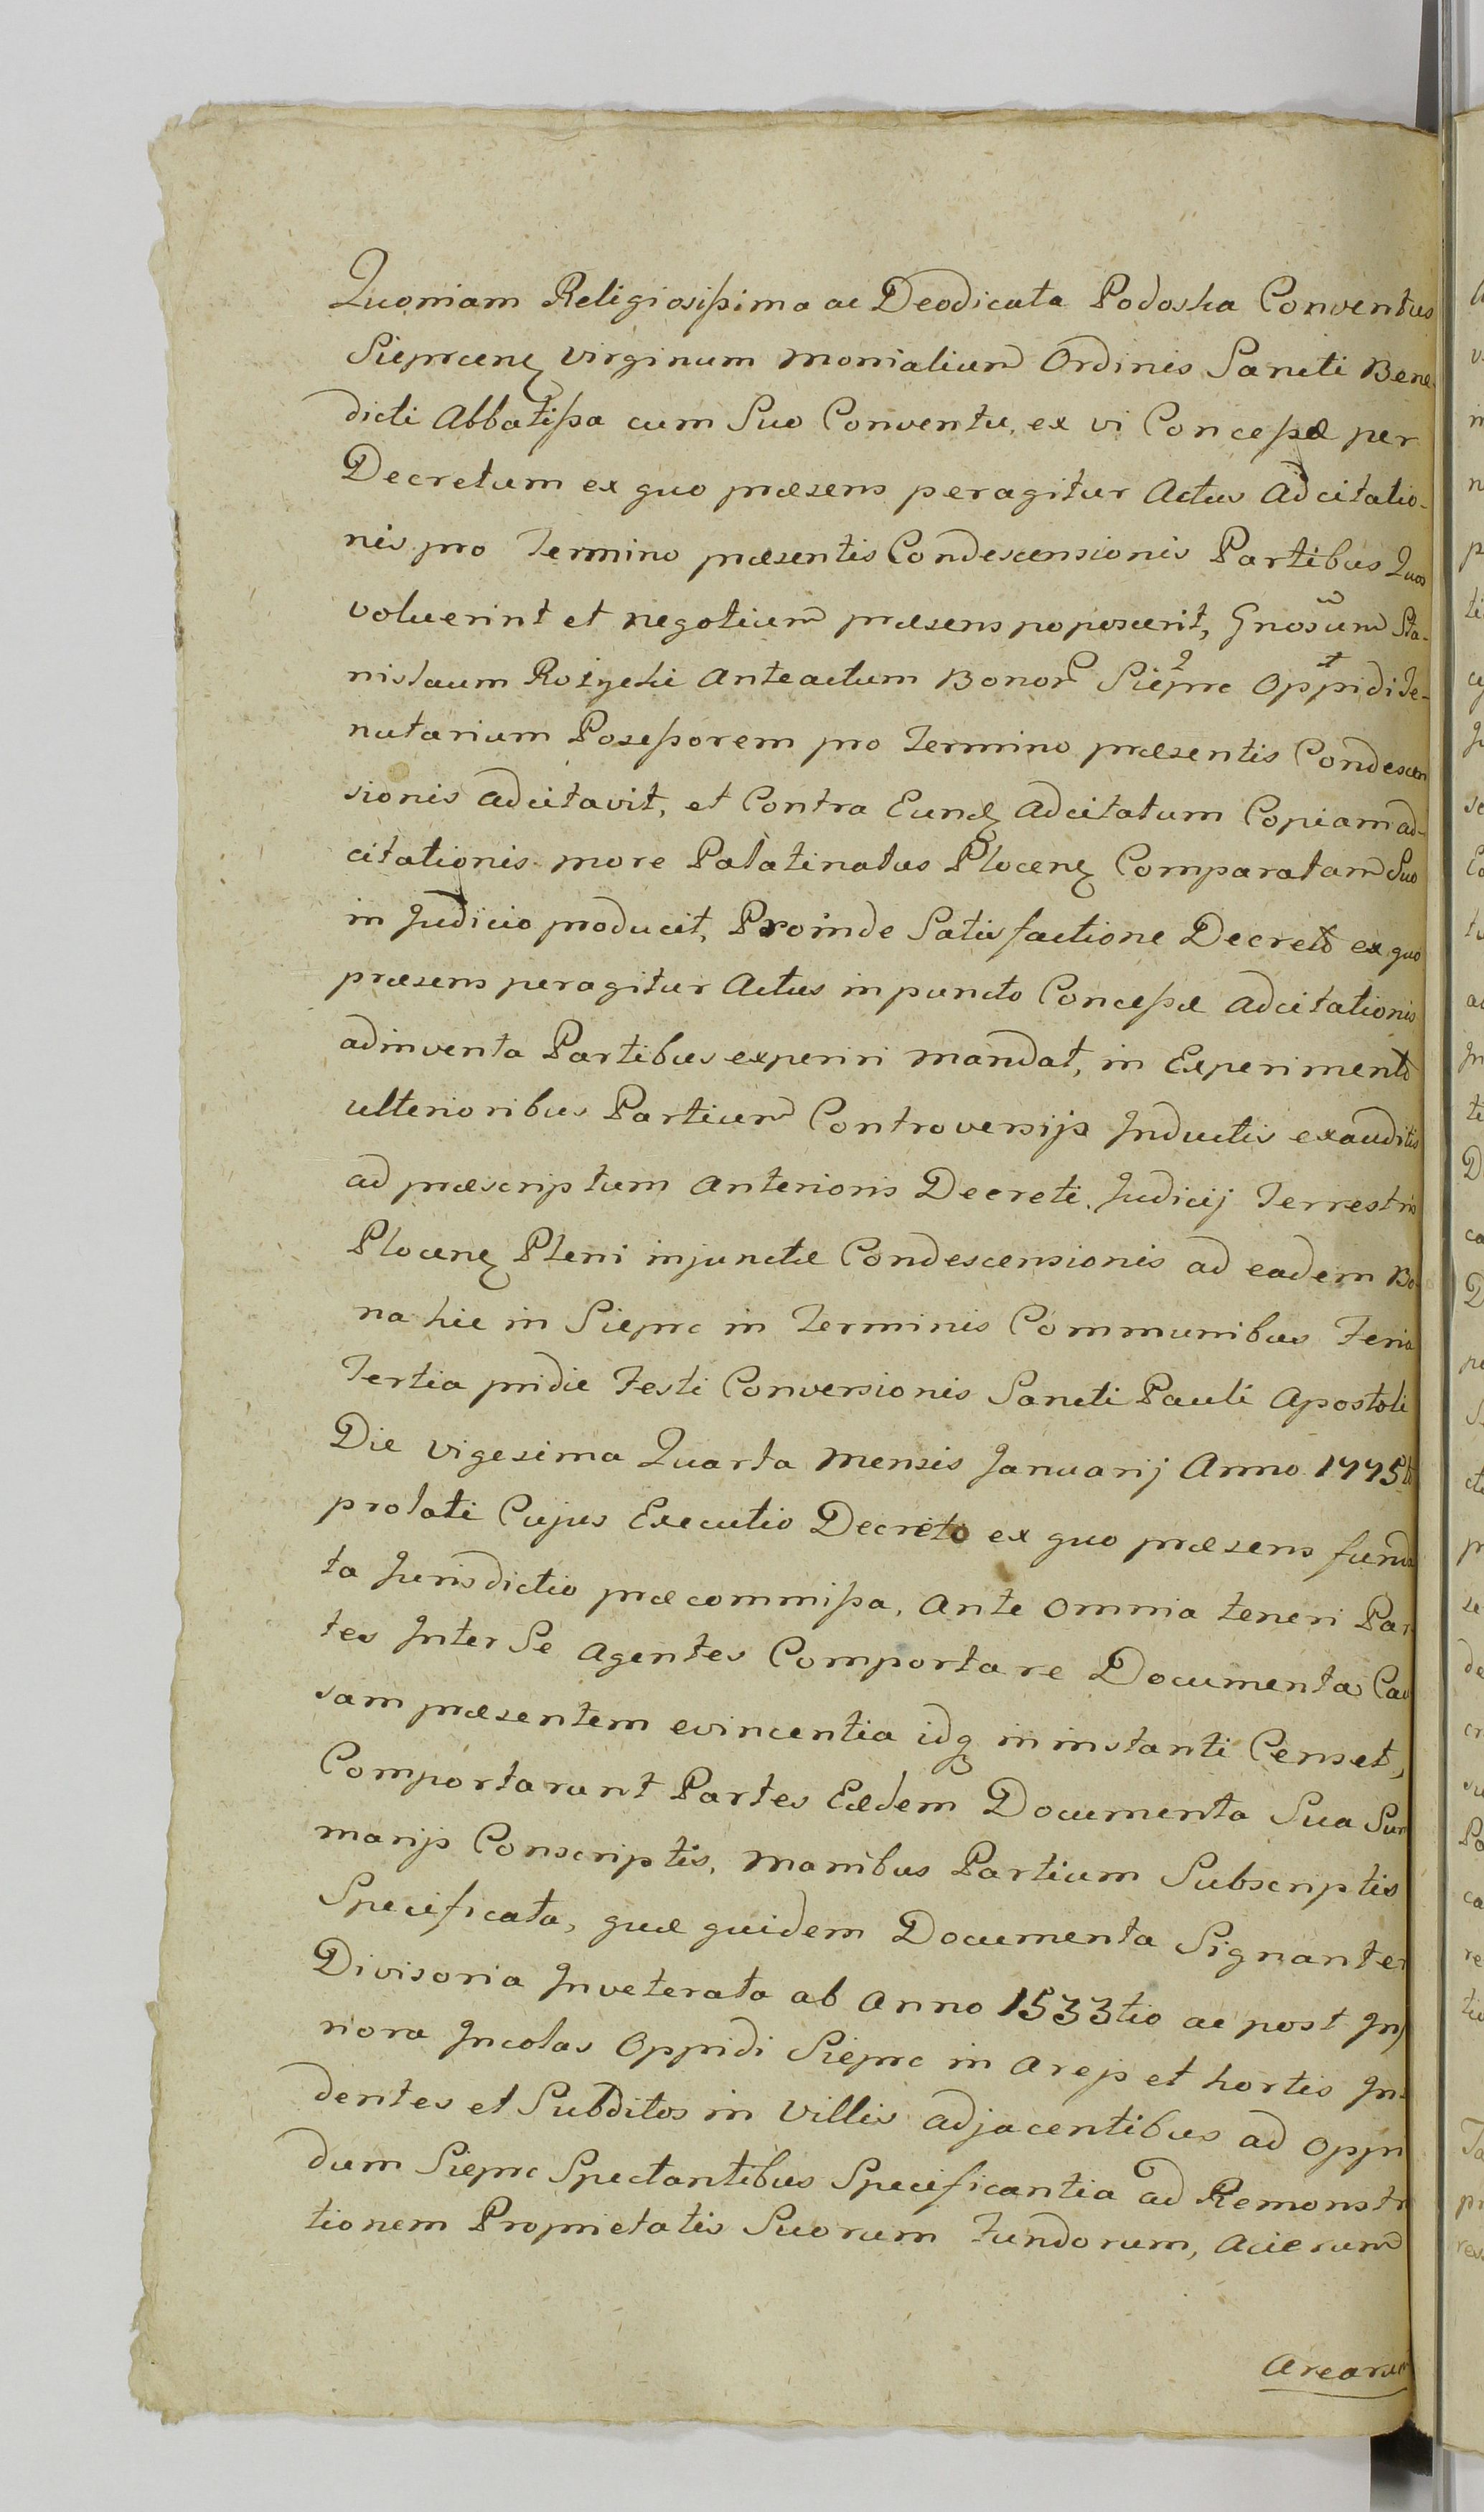 Quoniam Religiosissima ac Deodicata Podoska Conventus
Sieprcenz Virginum Monialium Ordinis Sancti Bene-
dicti Abbatissa cum Suo Conventu, ex vi Concessæ per
Decretum ex quo præsens peragitur Actus Adcitatio-
nis pro Termino præsentis Condescensionis Partibus Quos
voluerint et negotium præsens poposcerit, Gnosum Sta-
nislaum Rozycki Anteactum Bonor Sieprc Oppidi Te-
nutarium Posessorem pro Termino præsentis Condescen
sionis adcitavit, et Contra Eundz Adcitatum Copiam ad-
citationis more Palatinatus Plocenz Comparatam Suo
in Judicio producit, Proinde Satisfactione Decreto ex quo
præsens peragitur Actus in puncto Concessæ adcitationis
adinventa Partibus experiri mandat, in Experimento
ulterioribus Partium Controversijs Inductis exauditis
ad præscriptum Anterioris Decreti Judicij Terrestris
Plocenz Pleni injunctæ Condescensionis ad eadem Bo
na hic in Sieprc in Terminis Communibus Feria
Tertia pridie Festi Conversionis Sancti Pauli Apostoli
Die vigesima Quarta Mensis Januarij Anno 1775to
prolati Cujus Executio Decreto ex quo præsens funda
ta Jurisdictio præcommissa, Ante omnia teneri Par
tes Inter Se Agentes Comportare Documenta Cau
sam præsentem evincentia idq in instanti Censet,
Comportarunt Partes Eædem Documenta Sua Sum
marijs Conscriptis, Manibus Partium Subscriptis
Specificata, quæ quidem Documenta Signanter
Divisoria Inveterata ab Anno 1533tio ac post
riora Incolas Oppidi Sieprc in Arejs et hortis
dentes et Subditos in Villis adjacentibus ad Oppi
dum Sieprc Spectantibus Specificantia ad Remonstra
tionem Proprietatis Suorum Fundorum, Acierum
Arearum